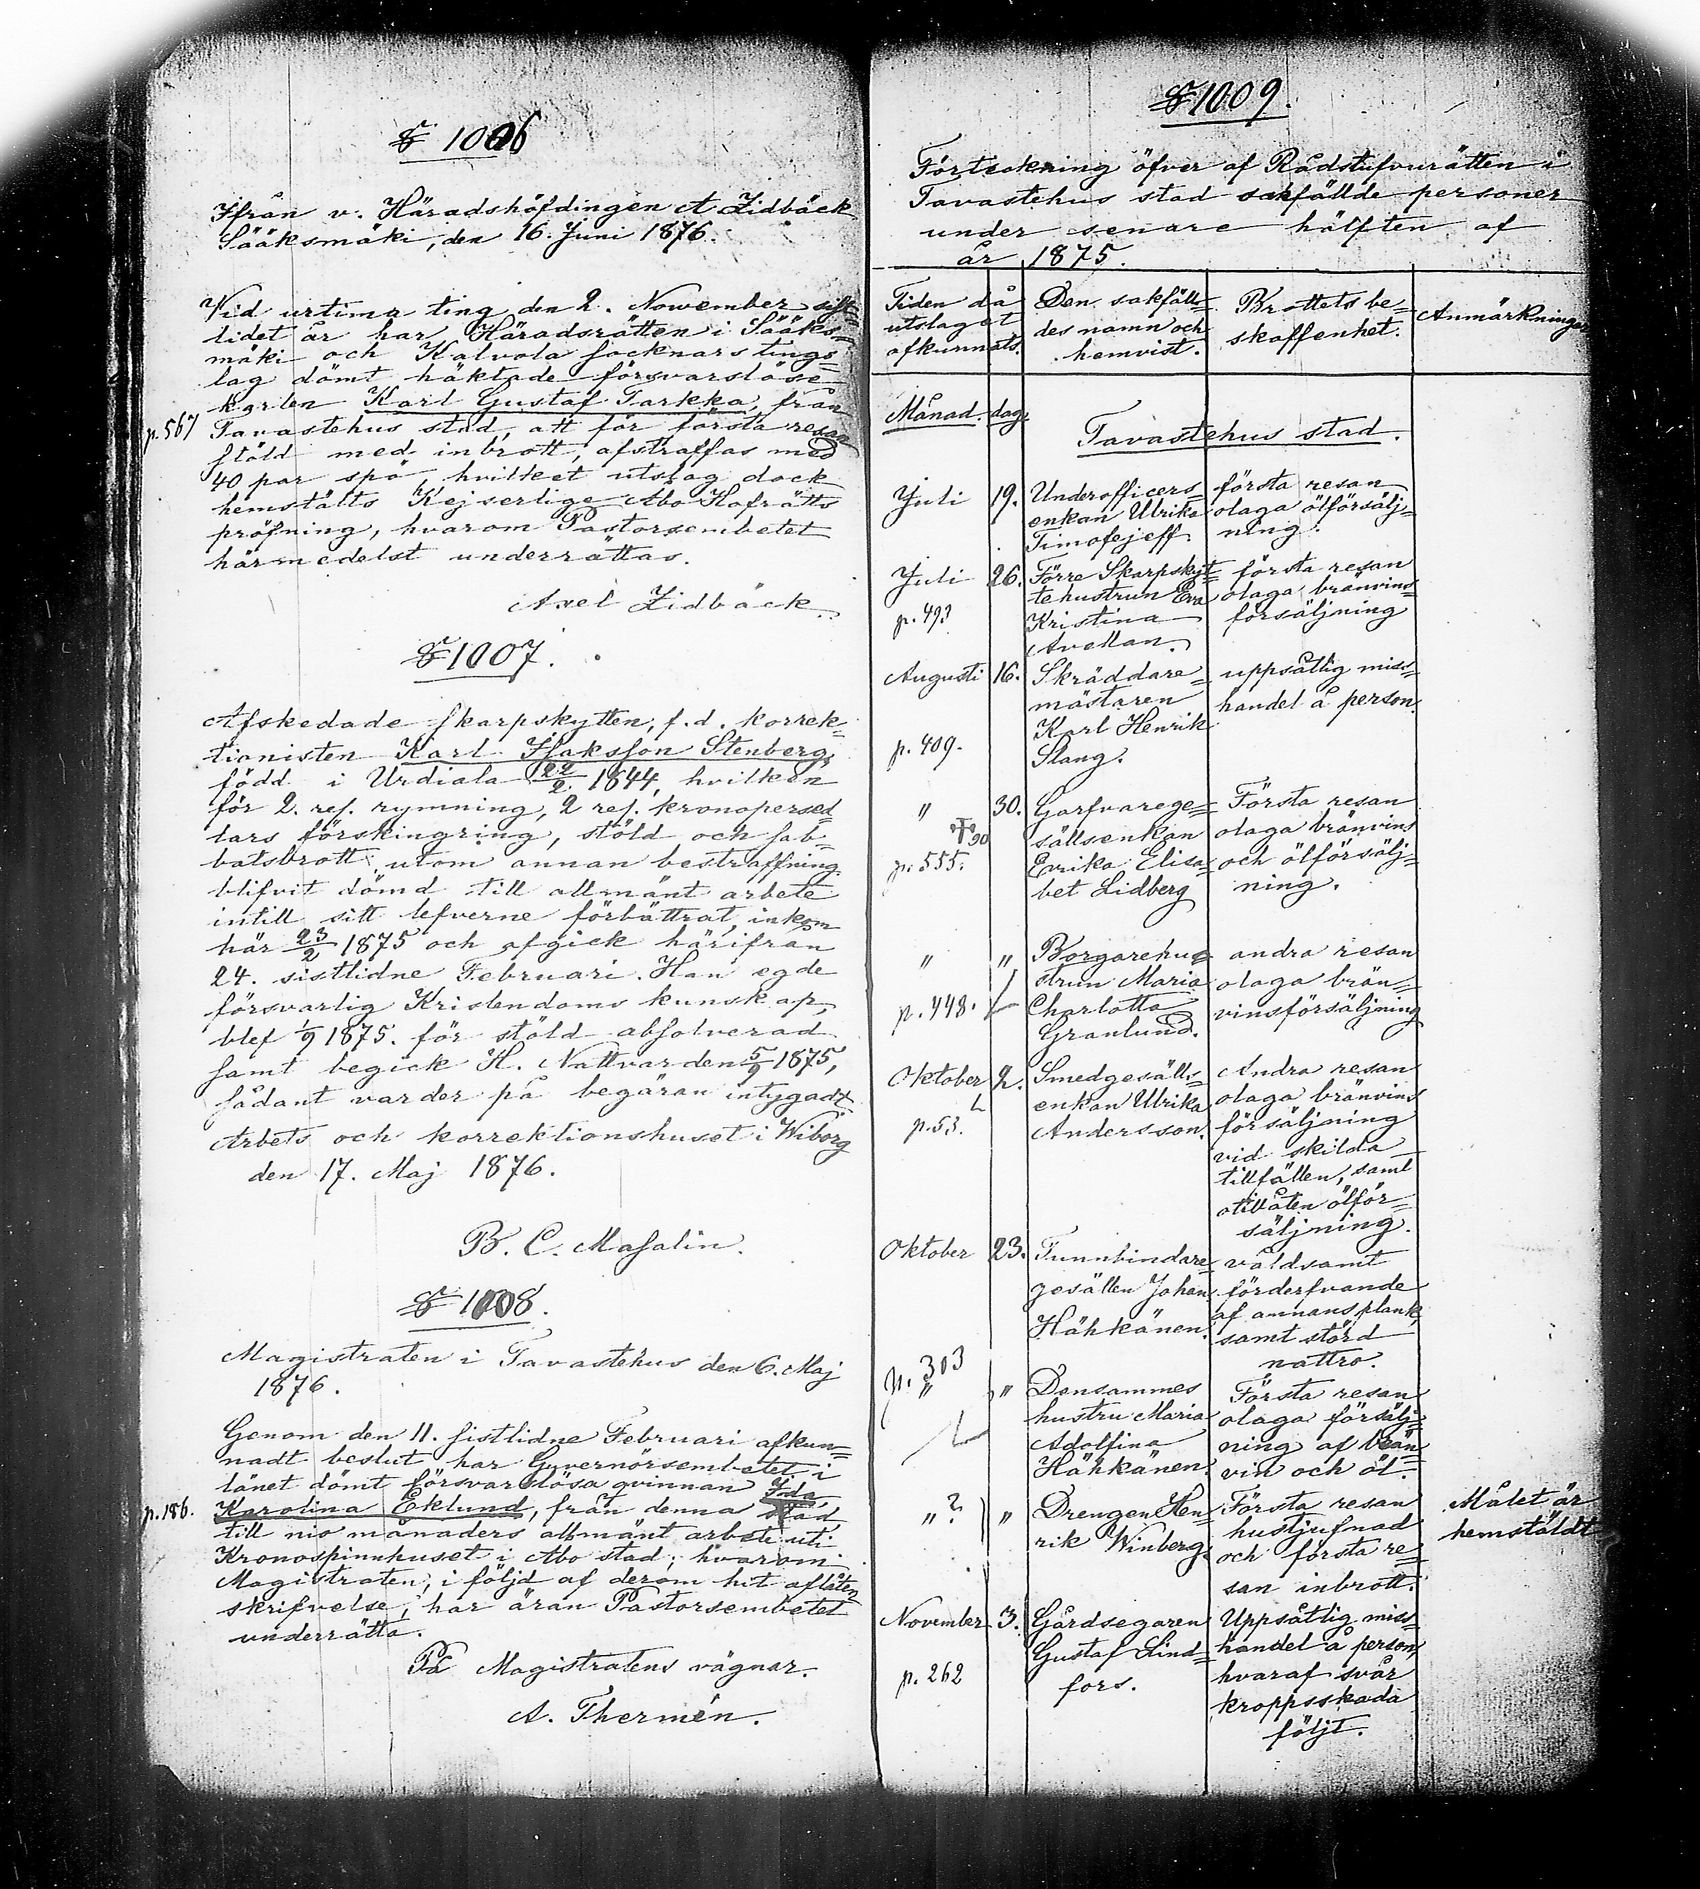 § 1006
Ifrån v. Häradshöfdingen A. Lidbäck
Sääksmäki, den 16. Juni 1876.
Vid urtima ting den 2. November sist-
lidet år har Häradsrätten i Sääks-
mäki och Kalvola socknars tings-
lag dömt häktade försvarslöse
karlen Karl Gustaf Tarkka, från
p. 567 Tavastehus stad, att för första resan
stöld med inbrott, afstraffas med
40 par spö, hvilket utslag dock
hemstälts Kejserlige Åbo Hofrätts
pröfning, hvarom Pastorsembetet
härmedelst underrättas.
Axel Lidbäck.
§ 1007.
Afskedade skarpskytten, f.d. korrek-
tionisten Karl Isaksson Stenberg,
född i Urdiala 22/2 1844, hvilken
för 2. res. rymning, 2 res. kronopersed-
lars förskingring, stöld och sab-
batsbrott utom annan bestraffning
blifvit dömd till allmänt arbete
intill sitt lefverne förbättrat, inkom
här 23/2 1875 och afgick härifrån
24. sistlidne Februari. Han egde
försvarlig Kristendoms kunskap,
blef 1/9 1875. för stöld absolverad
samt begick H. Nattvarden 5/9 1875,
sådant varder på begäran intygadt.
Arbets och korrektionshuset i Wiborg
den 17. Maj 1876.
B. C. Masalin.
§ 1008.
Magistraten i Tavastehus den 6. Maj
1876.
Genom den 11. sistlidne Februari afkun-
nadt beslut har Guvernörsembetet i
länet dömt försvarslösa qvinnan Ida
p. 186. Karolina Eklund, från denna stad
till nio månaders allmänt arbete uti
Kronospinnhuset i Åbo stad; hvarom
Magistraten, i följd af derom hit aflåten
skrifvelse, har äran Pastorsembetet
underrätta.
På Magistratens vägnar.
A. Thermén.
§ 1009.
Förteckning öfver af Rådstufvurätten i
Tavastehus stad sakfällde personer
under senare hälften af
år 1875.
Tiden då utslaget afkunnats. Den sakfäll- des namn och hemvist. Brottets be- skaffenhet. Anmärkningar
Månad. dag.
Tavastehus stad.
Juli 19. Underofficers- första resan
enkan Ulrika olaga ölförsälj-
Timofejeff. ning.
Juli 26. Förre Skarpskyt- första resan
p. 493 tehustrun Eva olaga bränvins-
Kristina försäljning
Avellan.
Augusti 16. Skräddare- uppsåtlig miss-
mästaren handel å person.
Karl Henrik
p. 409. Slang.
" 30. Garfvarege- Första resan
90 sällsenkan olaga bränvins
p. 555. Evrika Elisa- och ölförsälj-
bet Lidberg ning.
" " Borgarehu- andra resan
strun Maria olaga brän-
p. 448. Charlotta vinsförsäljning
Granlund.
Oktober 2. Smedgesälls- Andra resan
enkan Ulrika olaga bränvins
p. 53. Andersson. försäljning
vid skilda
tillfällen, samt
otillåten ölför-
säljning.
Oktober 23. Tunnbindare- våldsamt
gesällen Johan förderfvande
Hähkänen. af annans plank,
samt störd
p. 303 nattro.
" " Densammes Första resan
hustru Maria olaga försälj-
Adolfina ning af brän-
Hähkänen. vin och öl.
" ? " Drengen Hen- Första resan Målet är
rik Winberg. hustjufnad hemstäldt
och första re-
san inbrott.
November 3. Gårdsegaren Uppsåtlig miss-
Gustaf Lind- handel å person,
p. 262 fors. hvaraf svår
kroppsskada
följt.